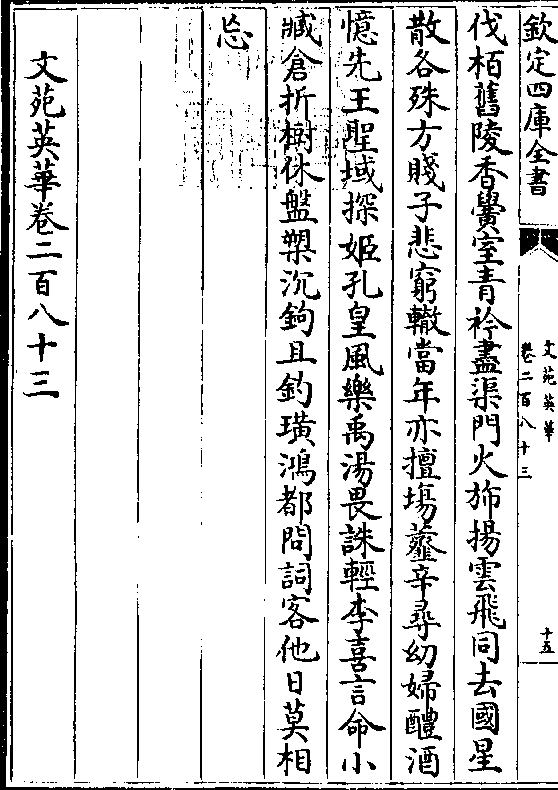 欽定四庫全書
文苑英華
卷二百八十三
十五
伐栢舊陵香黌室青衿盡渠門火斾揚雲飛同去國星
散各殊方賤子悲窮轍當年亦擅塲虀辛尋幼婦醴酒
憶先王聖域探姬孔皇風樂禹湯畏誅輕李喜言命小
臧倉折樹休盤槊沉鉤且釣璜鴻都問詞客他日莫相
忘
文苑英華卷二百八十三